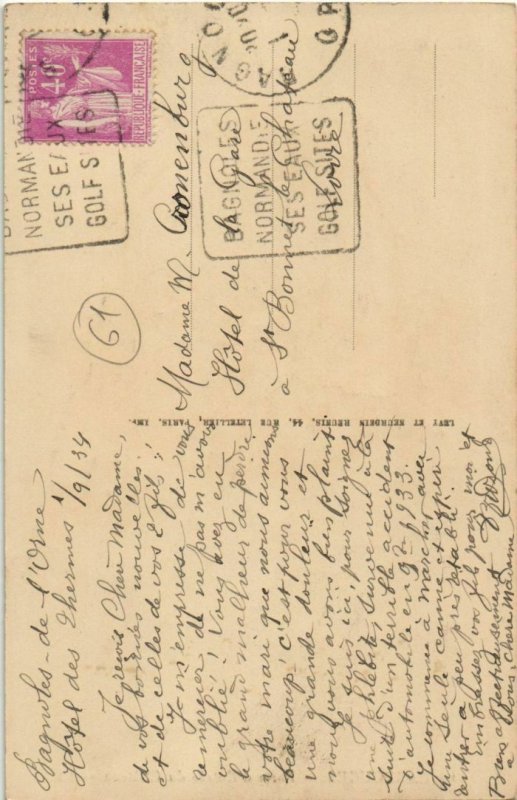 Bagnoles-de-l'Orne
Hôtel des Thermes 1/9/34
Je reçois Chère Madame,
de vos bonnes nouvelles
et de celles de vos 2 fils;
Je m'empresse de vous
remercier de ne pas m'avoir
oublié! Vous avez eu
le grand malheur de perdre
votre mari que nous aimions
beaucoup c'est pour vous
une grande douleur et
nous vous avons bien plaint
Je suis ici pour soigner
une phlébite survenue à la
suite d'un terrible accident
d'automobile en 1933.
Je commence à marcher avec
une seule canne et espère
rentrer à peu près rétabli.
Embrassez vos fils pour moi et
Bien affectueusement
à vous, chère Madame
LEVY ET NEURDEIN REUNIS, 44, RUE LETELLIER, PARIS. IMP.
61
Madame M.
Hôtel de la Gare
à St Bonnet le Château
Loire
POSTES
40c
REPUBLIQUE FRANÇAISE
NORMANDIE
SES EAUX
GOLF SITES
BAGNOLES
NORMANDIE
SES EAUX
GOLF SITES